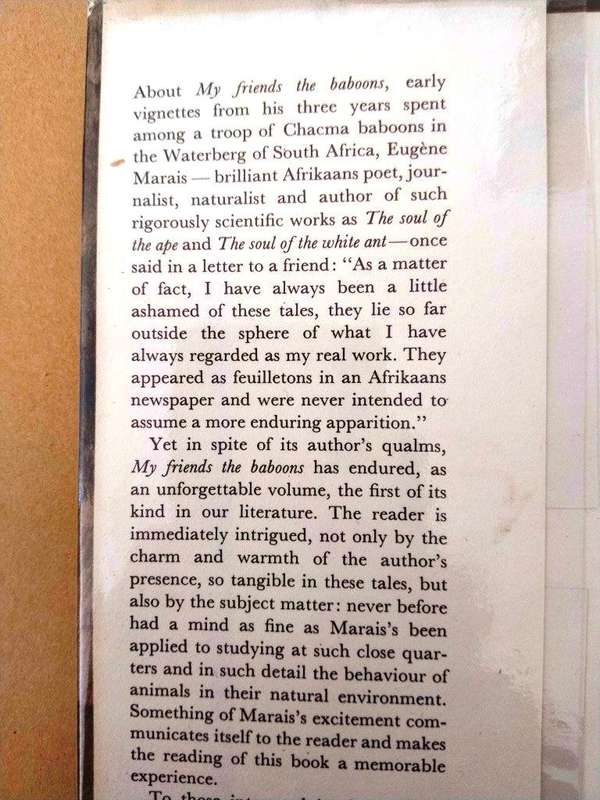 About My friends the baboons, early
vignettes from his three years spent
among a troop of Chacma baboons in
the Waterberg of South Africa, Eugène
Marais — brilliant Afrikaans poet, jour-
nalist, naturalist and author of such
rigorously scientific works as The soul of
the ape and The soul of the white ant—once
said in a letter to a friend: “As a matter
of fact, I have always been a little
ashamed of these tales, they lie so far
outside the sphere of what I have
always regarded as my real work. They
appeared as feuilletons in an Afrikaans
newspaper and were never intended to
assume a more enduring apparition.”
Yet in spite of its author’s qualms,
My friends the baboons has endured, as
an unforgettable volume, the first of its
kind in our literature. The reader is
immediately intrigued, not only by the
charm and warmth of the author’s
presence, so tangible in these tales, but
also by the subject matter: never before
had a mind as fine as Marais’s been
applied to studying at such close quar-
ters and in such detail the behaviour of
animals in their natural environment.
Something of Marais’s excitement com-
municates itself to the reader and makes
the reading of this book a memorable
experience.
To those